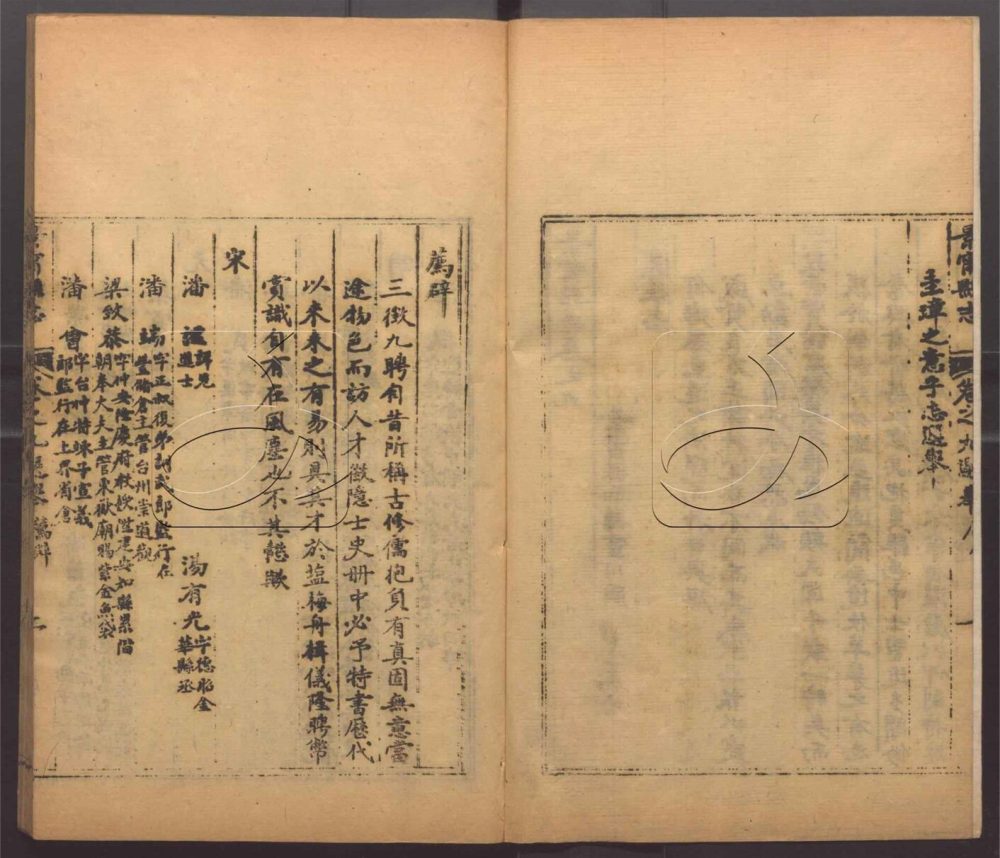 景甯縣志 卷之九選舉
圭璋之意乎志選舉
薦辟
三徵九聘旬昔所稱古修儒抱負有真固無意當
途物色而訪人才徵隱士史册中必予特書歷代
以來未之有易則具其才於盐梅舟楫儀隆聘幣
賞識自有在風塵也不其懿歟
宋
潘 詳見進士 湯有光 字德昭金華縣丞
潘 端 字正叔復弟訓武郎監行在豐儲倉主管台州崇道觀
梁致恭 字仲安隆慶府教授陞建安知縣累階朝奉大夫主管東嶽廟賜紫金魚袋
潘 會 字台叔特竦子宣義郎監行在上界省倉
卷之九選舉 薦辟